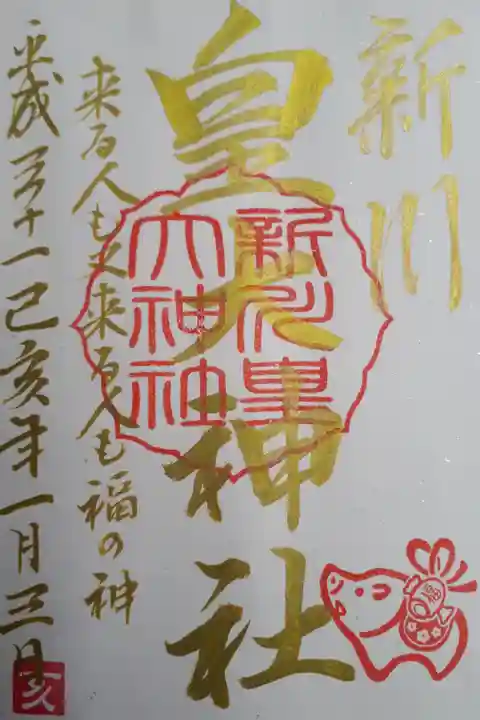 新川
皇大神社
新川皇
大神社
来る人も又来る人も福の神
平成三十一己亥年一月三日
亥